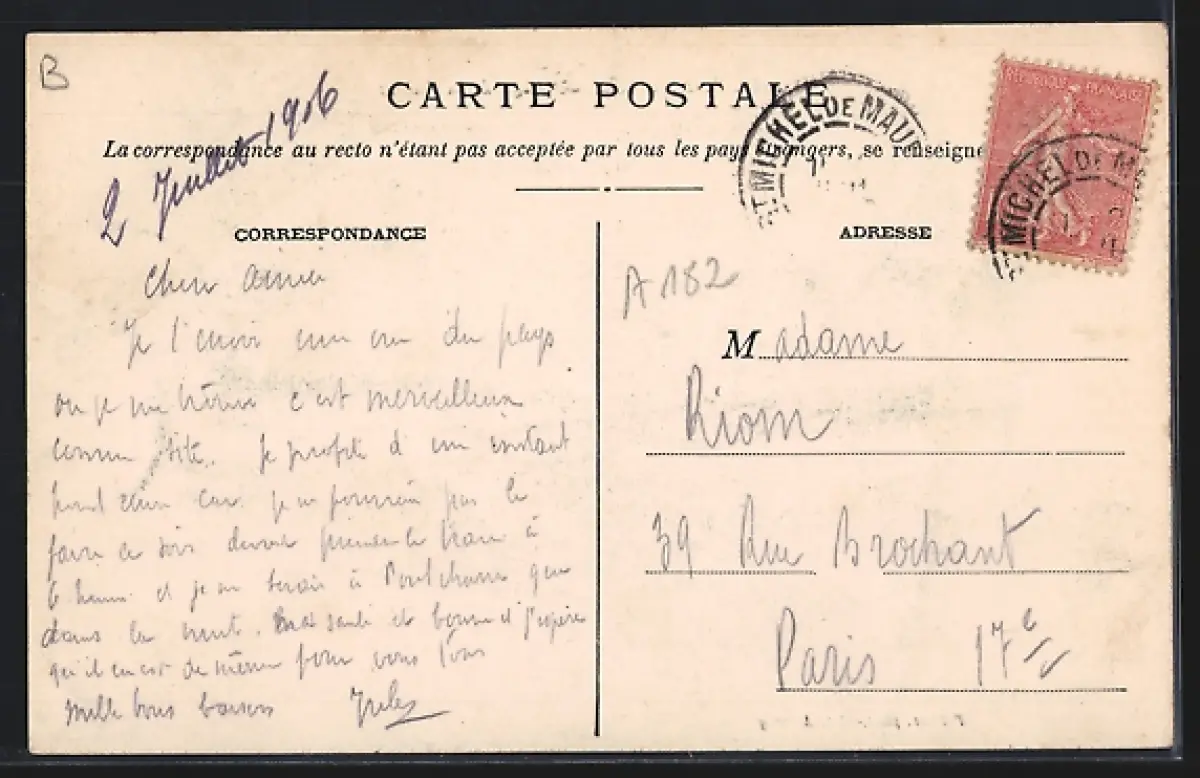 B
2 Juillet 1906
CARTE POSTALE
La correspondance au recto n'étant pas acceptée par tous les pays étrangers, se renseigne
ST MICHEL DE MAU
REPUBLIQUE FRANÇAISE
ST MICHEL DE M
CORRESPONDANCE
Chere
Je t'envoie une vue du pays
ou je me trouve c'est merveilleux
comme site. Je profite d'un instant
car je ne pourrai pas le
faire ce soir devant prendre le train à
6 heures et je ne serai à Pontcharra que
dans la nuit. santé et bonne et j'espère
qu'il en est de même pour vous tous
Mille bons baisers Jules
ADRESSE
A 182
Madame
Riom
39 Rue Brochant
Paris 17e